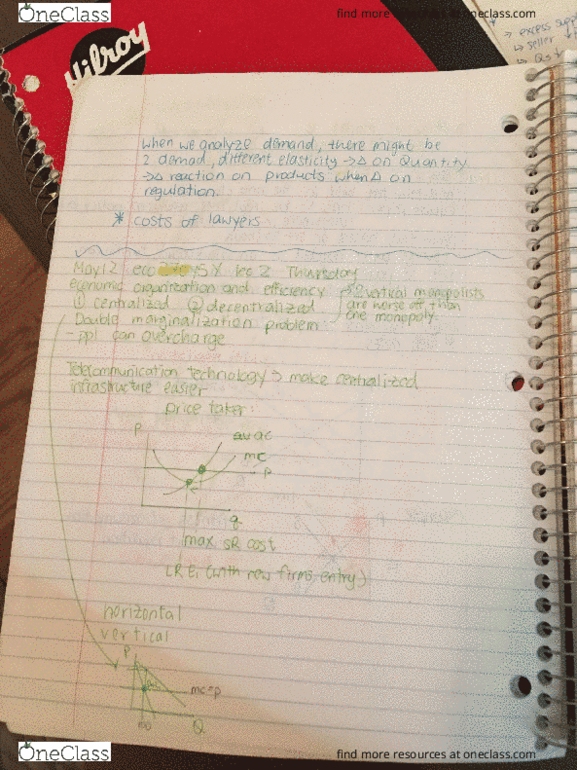 OneClass
find more resources at oneclass.com
Hilroy
→ excess supp
seller
When we analyze demand, there might be
2 demad, different elasticity →Δ on Quantity
→Δ reaction on products when Δ on
regulation.
* costs of lawyers
May12 eco Lec 2 Thursday
economic organization and efficiency
→ 2 vertical monopolists
① centralized ② decentralized
are worse off than
one monopoly.
Double marginalization problem
- ppl can overcharge
Telecommunication technology → make centralized
infrastructure easier
price taker:
P
av ac
mc
P
q
max SR cost
LR E: (with new firms entry)
horizontal
vertical
P
mc=p
Q
OneClass
find more resources at oneclass.com